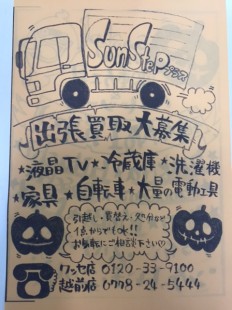 SunStepプラス
出張買取大募集
★液晶TV★冷蔵庫★洗濯機
★家具★自転車★大量の電動工具
引越し・買替え・処分など
1点からでもOK!!
お気軽にご相談下さい♡
ワッセ店 0120-33-9100
越前店 0778-24-5444